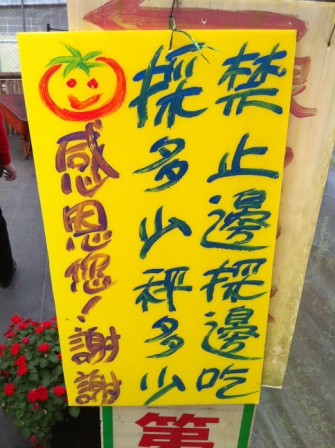 禁止邊採邊吃
採多少秤多少
感恩您！謝謝
第